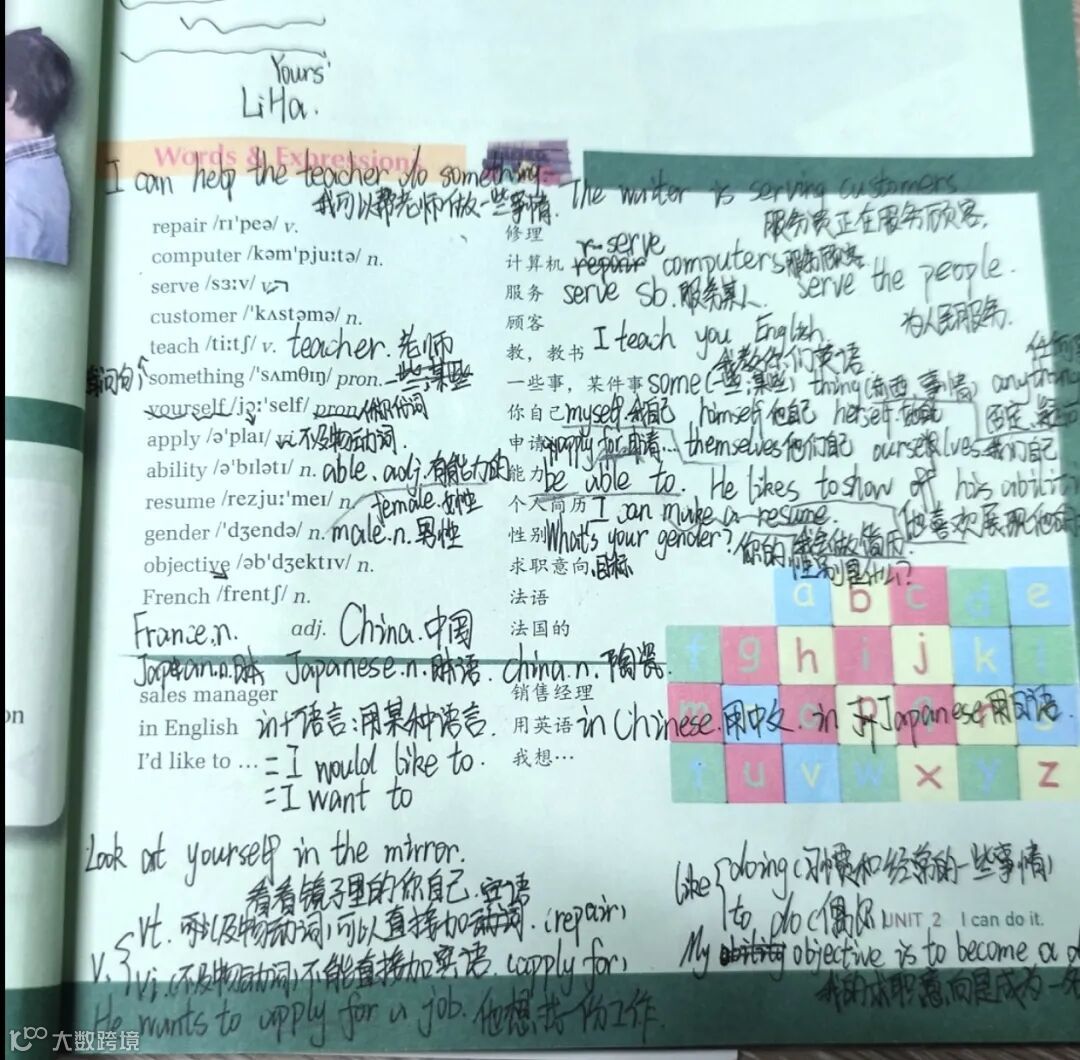 Yours'
LiHa.
Words & Expressions
I can help the teacher do something.
我可以帮老师做一些事情.
The waiter is serving customers
服务员正在服务顾客,
repair /rɪ'peə/ v. 修理
serve
computer /kəm'pju:tə/ n. 计算机 repair computers 服务顾客
serve /sɜ:v/ v. 服务 serve sb. 服务某人. serve the people.
为人民服务.
customer /'kʌstəmə/ n. 顾客
teach /ti:tʃ/ v. teacher. 老师 教,教书 I teach you English.
我教你们英语
something /'sʌmθɪŋ/ pron. 一些,某些 一些事,某件事 some(一些;某些) thing(东西,事情) anything
yourself /jɔ:'self/ pron. 你自己 myself.我自己 himself.他自己 herself.
apply /ə'plaɪ/ vi.不及物动词. 申请 apply for 申请... themselves 他们自己 ourselves 我们自己
ability /ə'bɪlətɪ/ n. able. adj. 有能力的 能力 be able to. He likes to show of his abilit
resume /rezju:'meɪ/ n. female.女性 个人简历 I can make a resume. 他喜欢展现他
gender /'dʒendə/ n. male.n.男性 性别 What's your gender? 你的性别是什么?
我会做简历.
objective /əb'dʒektɪv/ n. 求职意向,目标
French /frentʃ/ n. 法语
France.n. adj. China.中国 法国的
Japan.n.日本 Japanese.n.日语. china.n.陶瓷.
sales manager 销售经理
in English in+语言:用某种语言. 用英语 in Chinese.用中文 in Japanese 用日语.
I'd like to … = I would like to. 我想…
= I want to
a b c d e
f g h i j k l
m n o p q r s
t u v w x y z
Look at yourself in the mirror.
看看镜子里的你自己.
宾语
vt. 可以及物动词,可以直接加动词.(repair)
v. { vi.(不及物动词)不能直接加宾语.(apply for)
He wants to apply for a job. 他想找一份工作.
like { doing(习惯和经常的一些事情)
to do(偶尔)
UNIT 2 I can do it.
My ability objective is to become a
我的求职意向是成为一
on
大数跨境